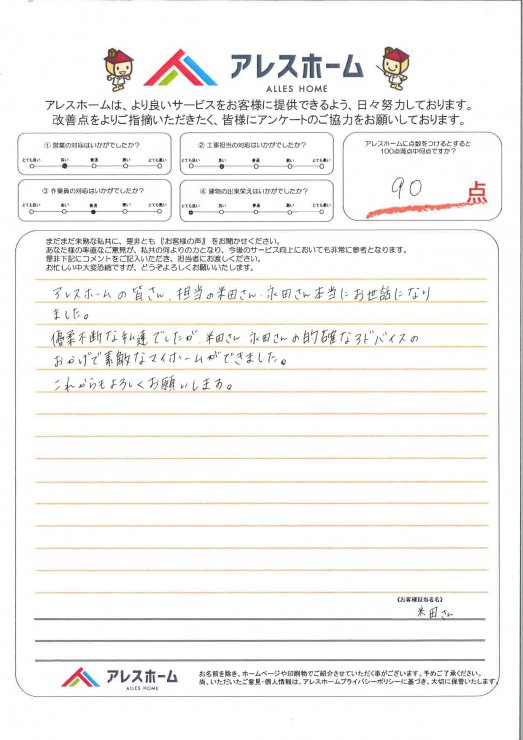 アレスホーム
ALLES HOME
アレスホームは、より良いサービスをお客様に提供できるよう、日々努力しております。
改善点をよりご指摘いただきたく、皆様にアンケートのご協力をお願いしております。
① 営業の対応はいかがでしたか?
とても良い 良い 普通 悪い とても悪い
② 工事担当の対応はいかがでしたか?
とても良い 良い 普通 悪い とても悪い
アレスホームに点数をつけるとすると
100点満点中何点ですか?
90 点
③ 作業員の対応はいかがでしたか?
とても良い 良い 普通 悪い とても悪い
④ 建物の出来栄えはいかがでしたか?
とても良い 良い 普通 悪い とても悪い
まだまだ未熟な私共に、是非とも『お客様の声』をお聞かせください。
あなた様の率直なご意見が、私共の何よりの力となり、今後のサービス向上においても非常に参考となります。
是非下記にコメントをご記入いただき、担当者にお渡しください。
お忙しい中大変恐縮ですが、どうぞよろしくお願いいたします。
アレスホームの皆さん、担当の米田さん、永田さん本当にお世話になり
ました。
優柔不断な私達でしたが、米田さん 永田さんの的確なアドバイスの
おかげで素敵なマイホームができました。
これからもよろしくお願いします。
《お客様担当者名》
米田さん
アレスホーム
ALLES HOME
お名前を除き、ホームページや印刷物でご紹介させていただく事がございます。予めご了承ください。
尚、いただいたご意見・個人情報は、アレスホームプライバシーポリシーに基づき、大切に保管いたします。